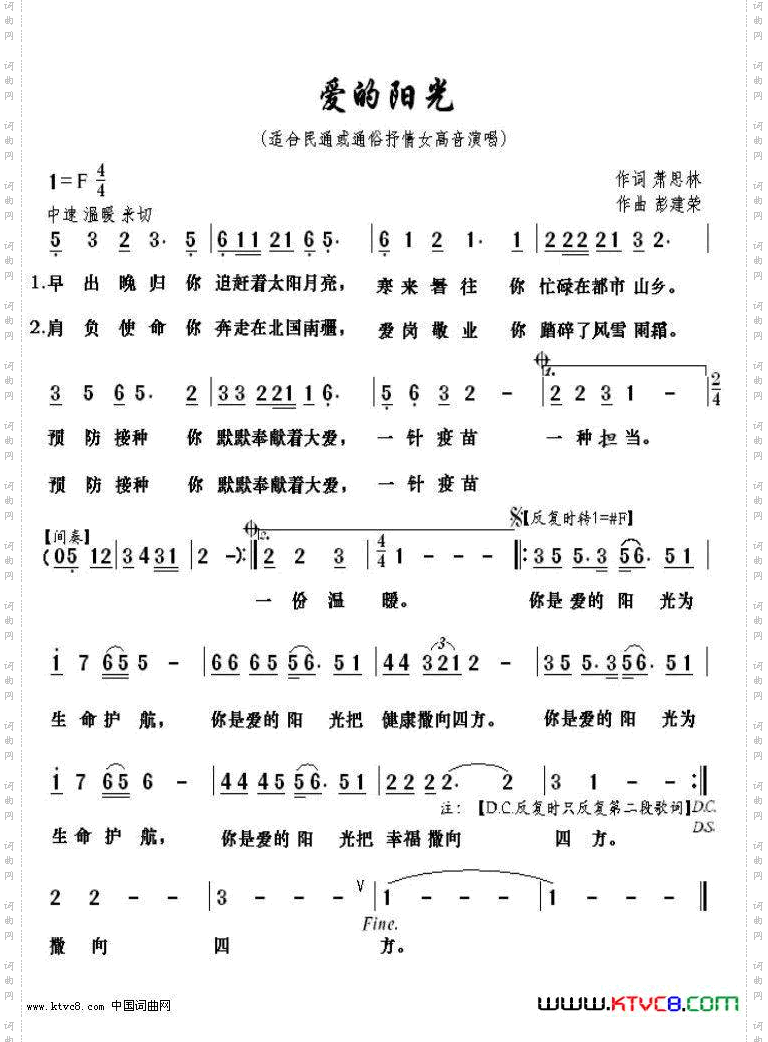 爱的阳光
（适合民通或通俗抒情女高音演唱）
1=F 4/4
作词 萧思林
中速 温暖 亲切
作曲 彭建荣
5 3 2 3· 5 | 6 1 1 2 1 6 5· | 6 1 2 1· 1 | 2 2 2 2 1 3 2· |
1.早 出 晚 归 你 追赶着太阳月亮， 寒 来 暑 往 你 忙碌在都市 山乡。
2.肩 负 使 命 你 奔走在北国南疆， 爱 岗 敬 业 你 踏碎了风雪 雨霜。
3 5 6 5· 2 | 3 3 2 2 1 1 6· | 5 6 3 2 - | 1. 2 2 3 1 - | 2/4
预 防 接种 你 默默奉献着大爱， 一 针 疫 苗 一 种 担 当。
预 防 接种 你 默默奉献着大爱， 一 针 疫 苗
【间奏】
【反复时转1=#F】
(0 5 1 2 | 3 4 3 1 | 2 - ):‖ 2. 2 2 3 | 4/4 1 - - - ‖: 3 5 5· 3 5 6· 5 1 |
一 份 温 暖。 你是 爱的 阳 光为
1 7 6 5 5 - | 6 6 6 5 5 6· 5 1 | 4 4 3 2 1 2 - | 3 5 5· 3 5 6· 5 1 |
生 命 护 航， 你是爱的 阳 光把 健康撒向四方。 你是爱的 阳 光为
1 7 6 5 6 - | 4 4 4 5 5 6· 5 1 | 2 2 2 2 2· 2 | 3 1 - - :‖
注：【D.C.反复时只反复第二段歌词】D.C.
D.S.
生 命 护 航， 你是爱的 阳 光把 幸福 撒向 四 方。
2 2 - - | 3 - - - V | 1 - - - | 1 - - - ‖
Fine.
撒 向 四 方。
www.ktvc8.com 中国词曲网
WWW.KTVC8.COM
词曲网